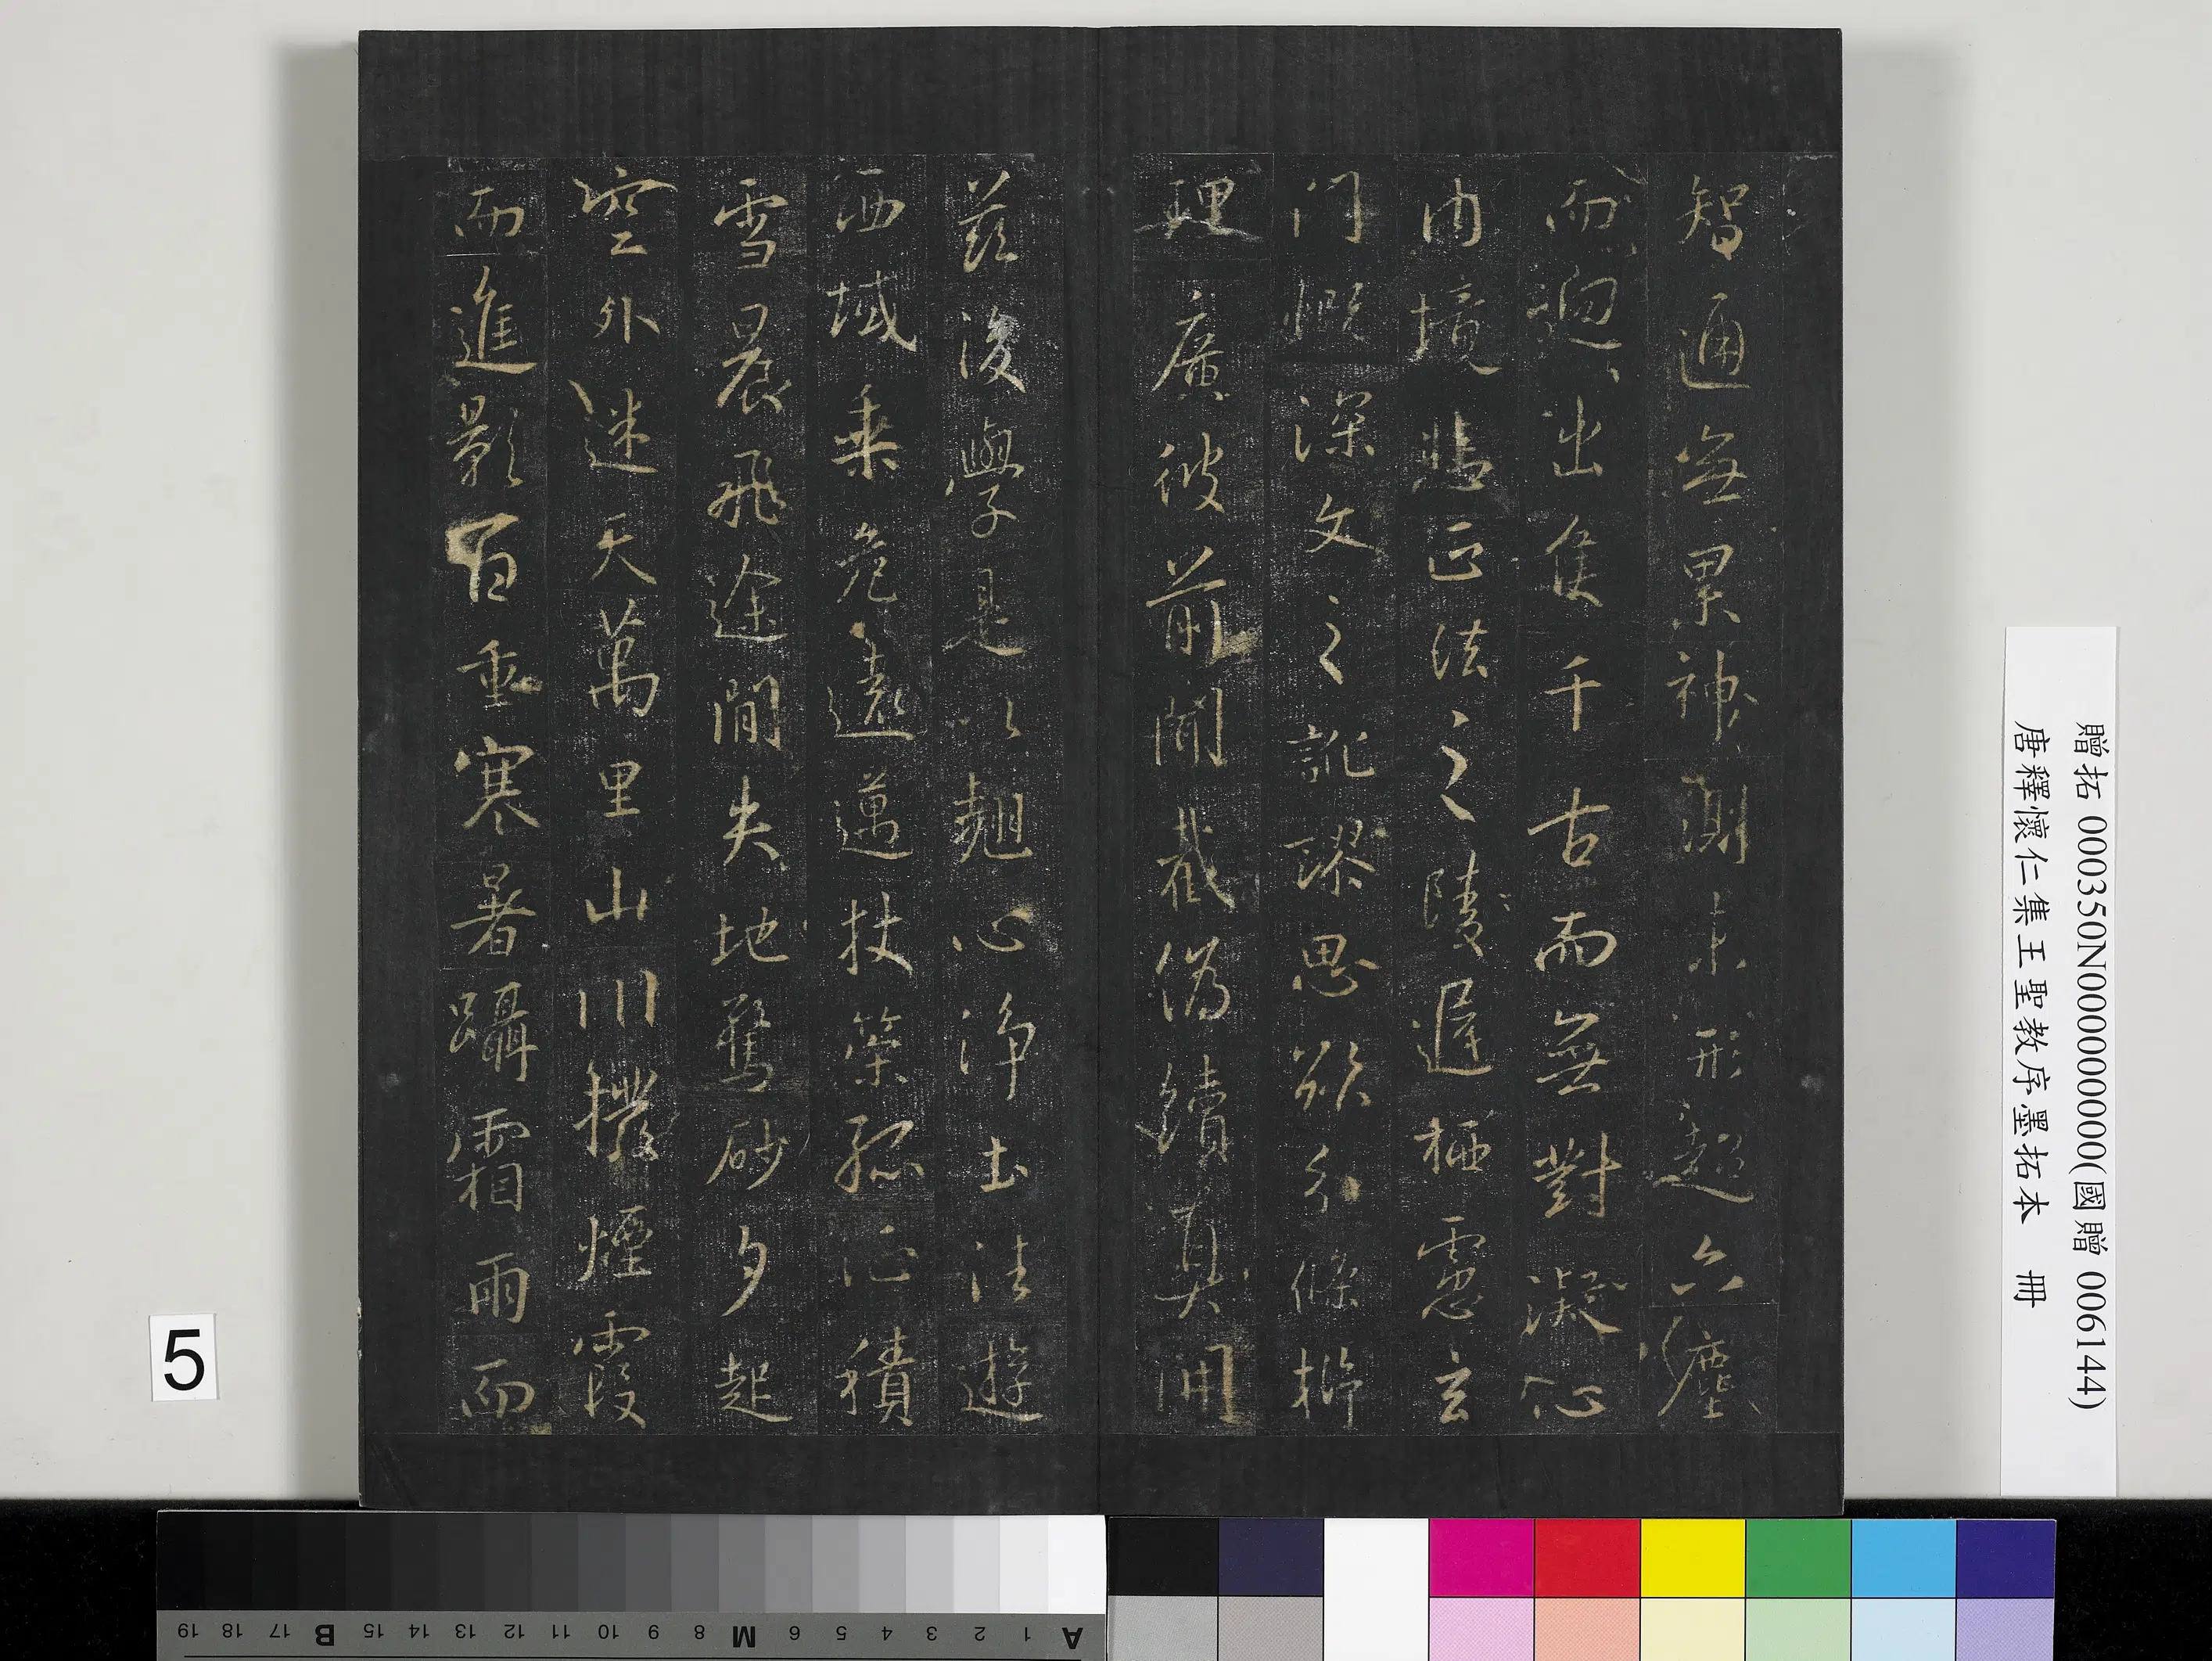 智通無累神測未形超六塵
而迥出隻千古而無對凝心
內境悲正法之陵遲栖慮玄
門慨深文之訛謬思欲分條析
理廣彼前聞截偽續真開
茲後學是以翹心淨土往遊
西域乘危遠邁杖策孤征積
雪晨飛途閒失地驚砂夕起
空外迷天萬里山川撥煙霞
而進影百重寒暑躡霜雨而
贈拓 000350N000000000(國贈 006144)
唐釋懷仁集王聖教序墨拓本 冊
5
A 1 2 3 4 5 6 M 8 9 10 11 12 13 14 15 B 17 18 19